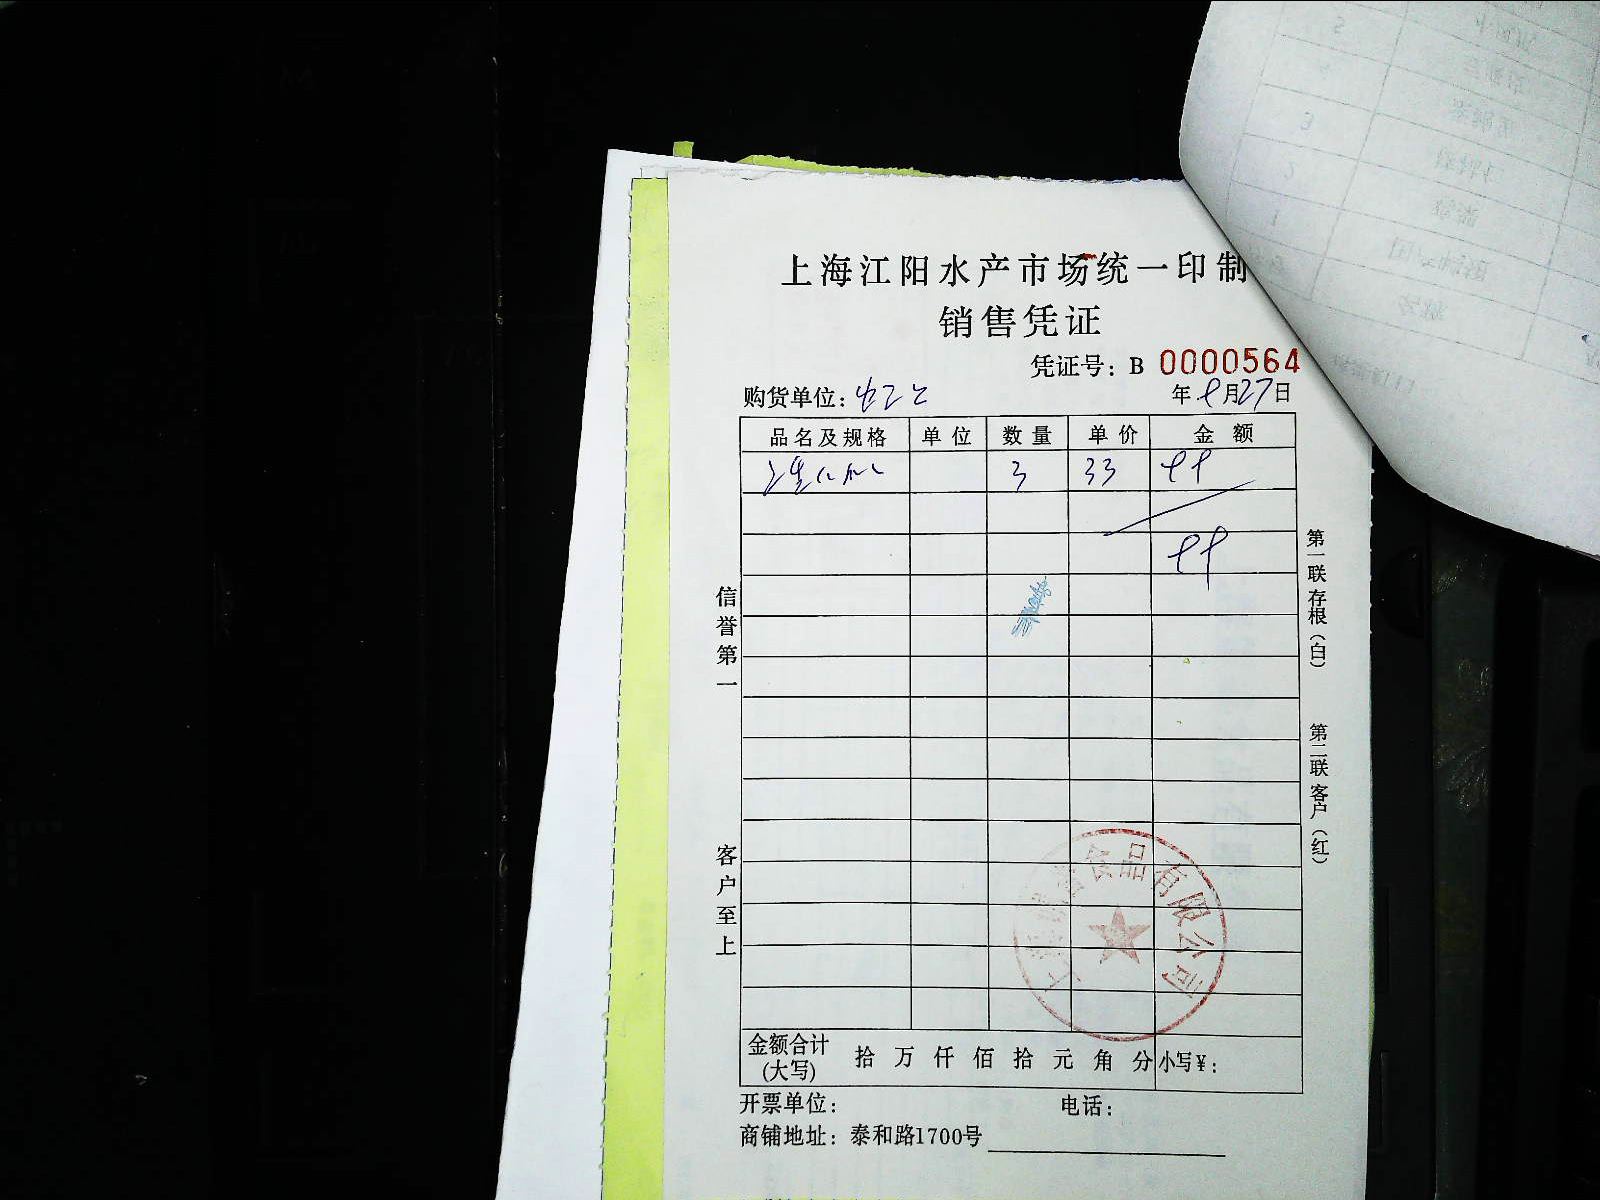 上海江阳水产市场统一印制
销售凭证
凭证号：B 0000564
购货单位：
年 9月27日
品名及规格 单位 数量 单价 金额
3 33 99
99
信誉第一
客户至上
第一联存根（白）
第二联客户（红）
食品有限公司
金额合计（大写） 拾 万 仟 佰 拾 元 角 分 小写￥：
开票单位： 电话：
商铺地址：泰和路1700号